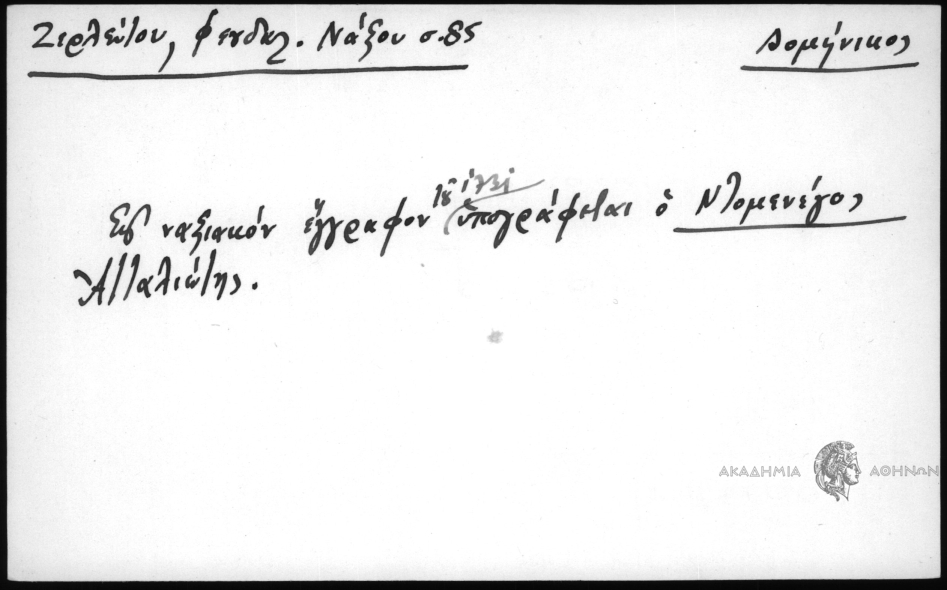 Ζερλέντου, φεουδαλ. Νάξου σ. 85
Δομήνικος
Εἰς ναξιακόν ἔγγραφον ὑπογράφεται ὁ Ντομενέγος
Ἀτταλιώτης.
ΑΚΑΔΗΜΙΑ ΑΘΗΝΩΝ